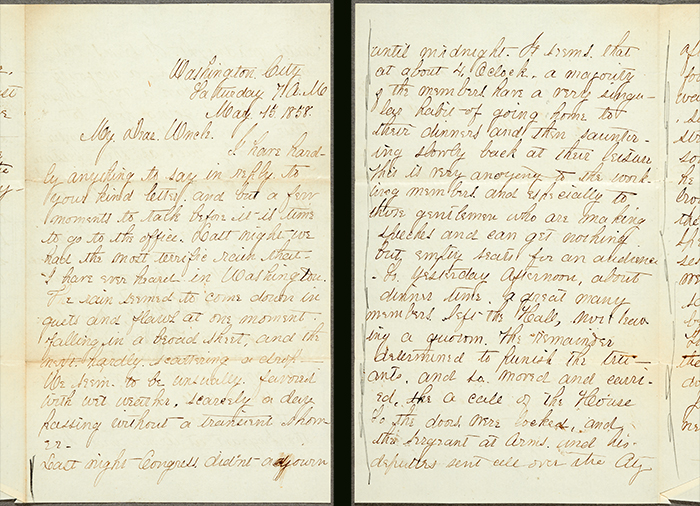 Washington City
Saturday 7 A. M.
May 15. 1858.
My Dear Uncle.
I have hard-
ly anything to say in reply to
your kind letter, and but a few
moments to talk before it is time
to go to the office. Last night we
had the most terrific rain that
I have ever heard in Washington.
The rain seemed to come down in
guts and flaws at one moment
falling in a broad sheet, and the
next hardly scattering a drop.
We seem to be unusually favored
with wet weather, scarcely a day
passing without a transient show-
er-
Last night Congress didn't adjourn
until midnight. It seems that
at about 4 O'clock, a majority
of the members have a very singu-
lar habit of going home to
their dinners and then saunter-
ing slowly back at their leisure
This is very anoying to the work-
ing members and especially to
those gentlemen who are making
speeches and can get nothing
but, empty seats for an audience
So yesterday afternoon, about
dinner time, a great many
members left the Hall, not leav
ing a quorum. The remainder
determined to punish the tru-
ants, and so moved and carri-
ed, a call of the House
So the doors were locked, and
the sergeant at Arms and his
deputies sent all over the City